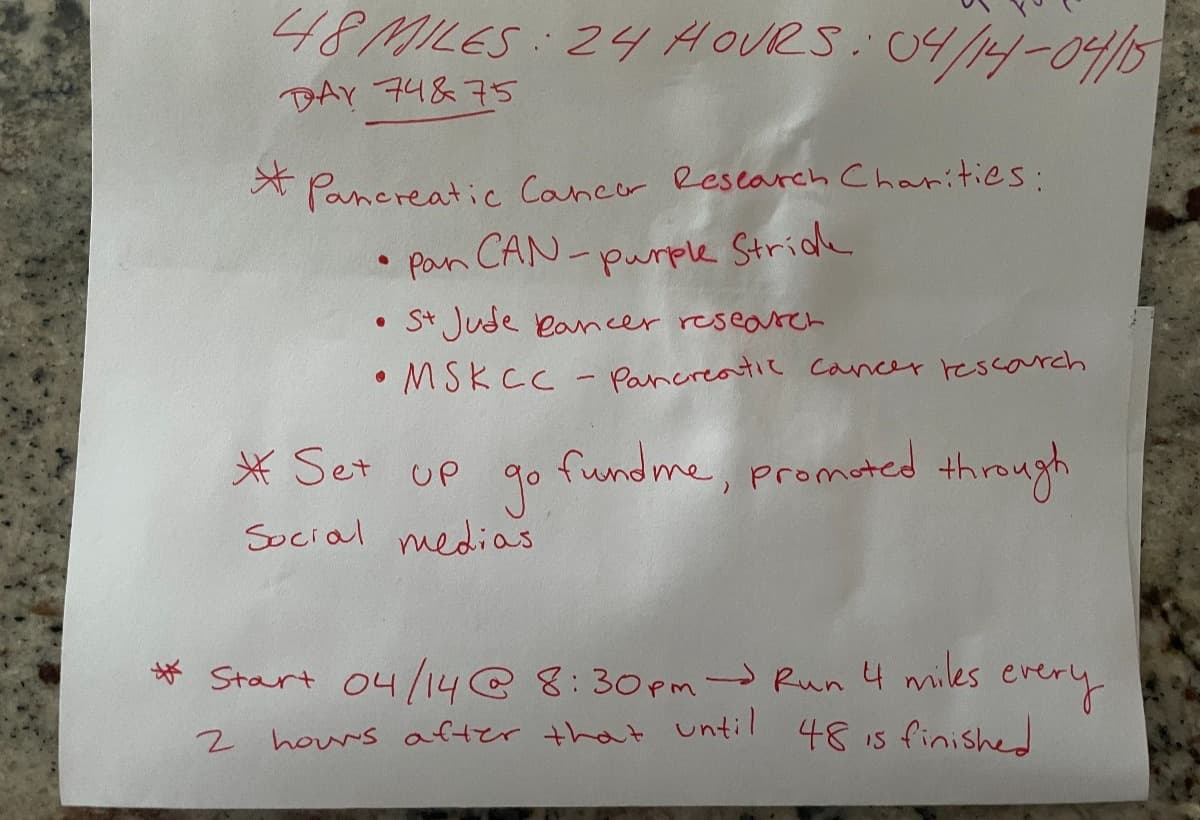 48 MILES: 24 HOURS: 04/14-04/15
DAY 74 & 75
* Pancreatic Cancer Research Charities:
• pan CAN - purple Stride
• St Jude cancer research
• MSKCC - Pancreatic cancer research
* Set up go fundme, promoted through
Social medias
* Start 04/14 @ 8:30pm → Run 4 miles every
2 hours after that until 48 is finished